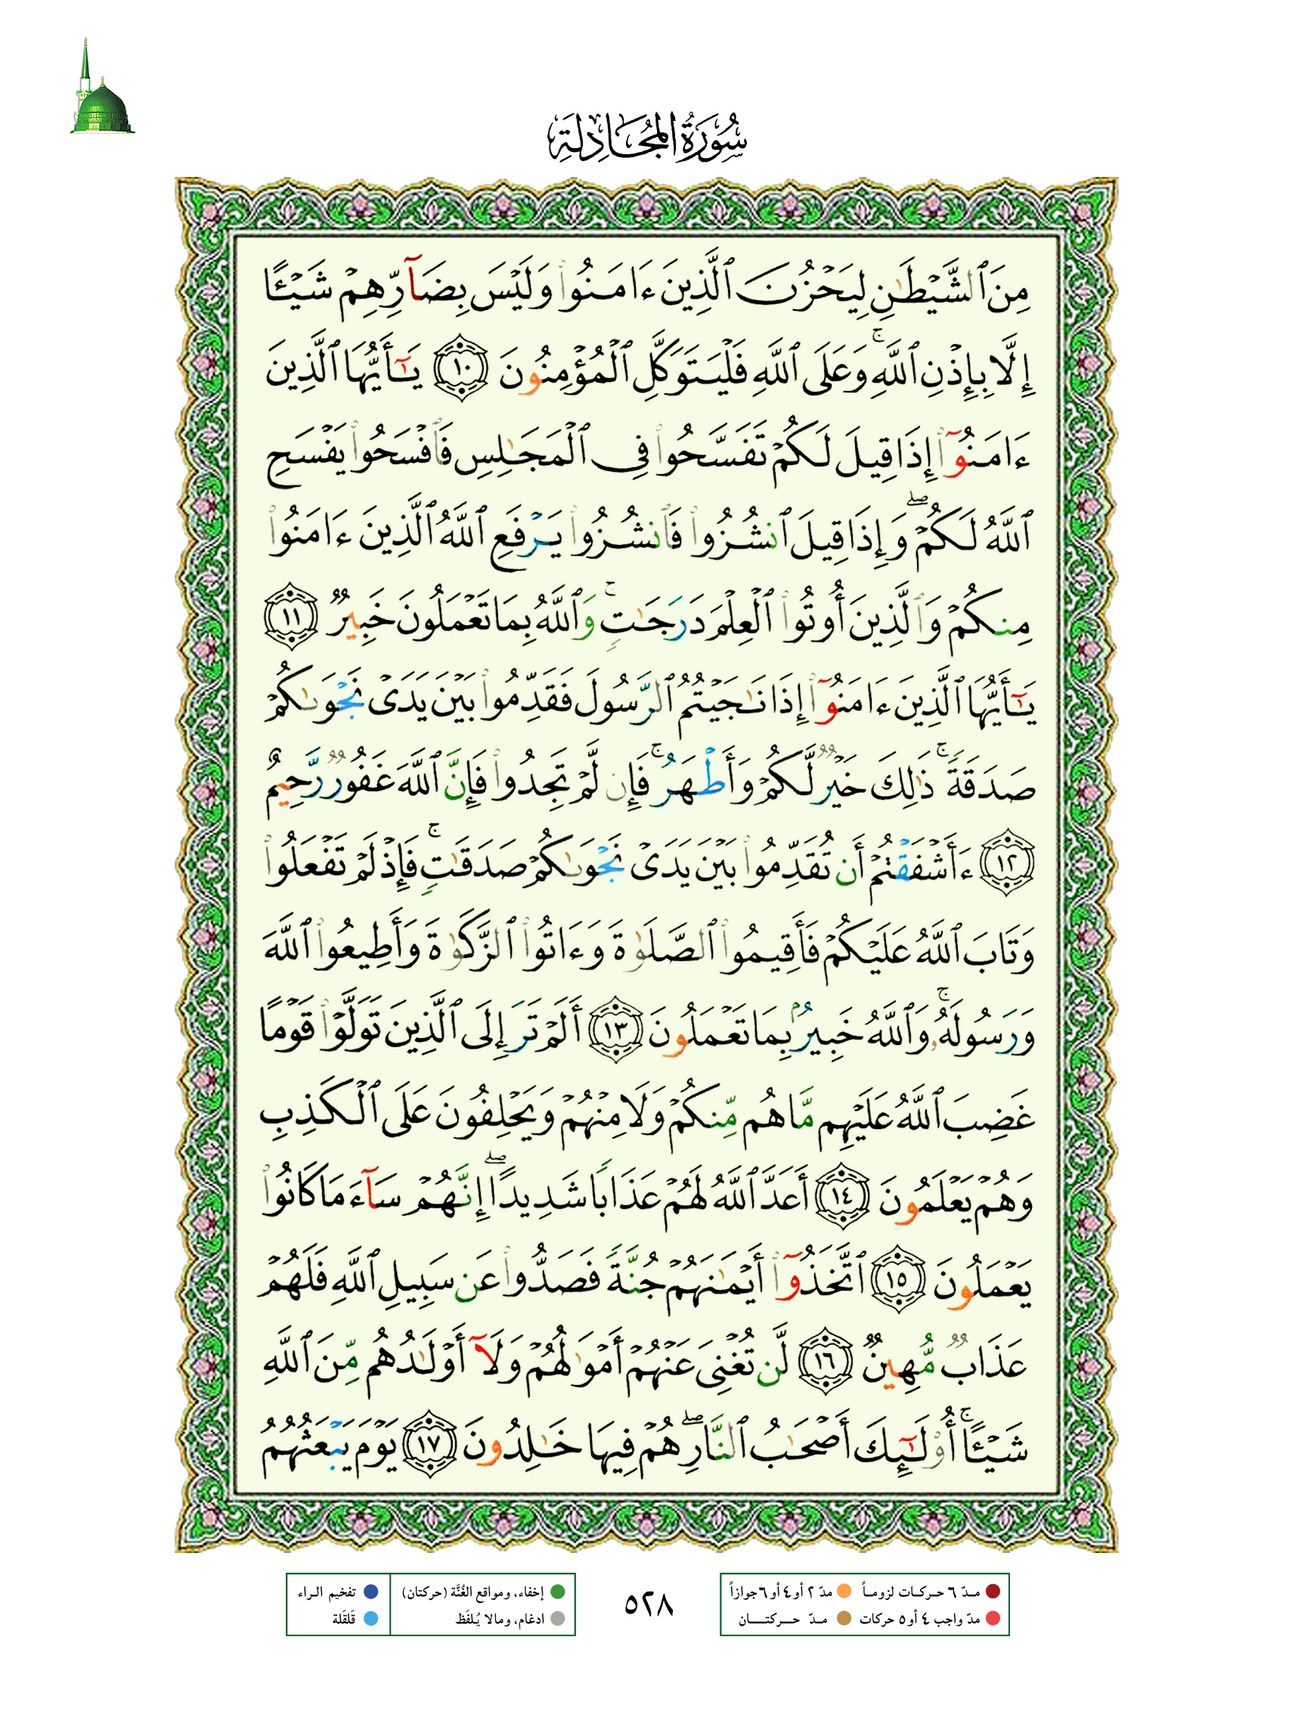 سُورَةُ المُجَادِلَةِ
مِنَ ٱلشَّيْطَٰنِ لِيَحْزُنَ ٱلَّذِينَ ءَامَنُوا۟ وَلَيْسَ بِضَآرِّهِمْ شَيْـًٔا
إِلَّا بِإِذْنِ ٱللَّهِ ۚ وَعَلَى ٱللَّهِ فَلْيَتَوَكَّلِ ٱلْمُؤْمِنُونَ ١٠ يَٰٓأَيُّهَا ٱلَّذِينَ
ءَامَنُوٓا۟ إِذَا قِيلَ لَكُمْ تَفَسَّحُوا۟ فِى ٱلْمَجَٰلِسِ فَٱفْسَحُوا۟ يَفْسَحِ
ٱللَّهُ لَكُمْ ۖ وَإِذَا قِيلَ ٱنشُزُوا۟ فَٱنشُزُوا۟ يَرْفَعِ ٱللَّهُ ٱلَّذِينَ ءَامَنُوا۟
مِنكُمْ وَٱلَّذِينَ أُوتُوا۟ ٱلْعِلْمَ دَرَجَٰتٍ ۚ وَٱللَّهُ بِمَا تَعْمَلُونَ خَبِيرٌ ١١
يَٰٓأَيُّهَا ٱلَّذِينَ ءَامَنُوٓا۟ إِذَا نَٰجَيْتُمُ ٱلرَّسُولَ فَقَدِّمُوا۟ بَيْنَ يَدَىْ نَجْوَىٰكُمْ
صَدَقَةً ۚ ذَٰلِكَ خَيْرٌ لَّكُمْ وَأَطْهَرُ ۚ فَإِن لَّمْ تَجِدُوا۟ فَإِنَّ ٱللَّهَ غَفُورٌ رَّحِيمٌ
١٢ ءَأَشْفَقْتُمْ أَن تُقَدِّمُوا۟ بَيْنَ يَدَىْ نَجْوَىٰكُمْ صَدَقَٰتٍ ۚ فَإِذْ لَمْ تَفْعَلُوا۟
وَتَابَ ٱللَّهُ عَلَيْكُمْ فَأَقِيمُوا۟ ٱلصَّلَوٰةَ وَءَاتُوا۟ ٱلزَّكَوٰةَ وَأَطِيعُوا۟ ٱللَّهَ
وَرَسُولَهُۥ ۚ وَٱللَّهُ خَبِيرٌۢ بِمَا تَعْمَلُونَ ١٣ أَلَمْ تَرَ إِلَى ٱلَّذِينَ تَوَلَّوْا۟ قَوْمًا
غَضِبَ ٱللَّهُ عَلَيْهِم مَّا هُم مِّنكُمْ وَلَا مِنْهُمْ وَيَحْلِفُونَ عَلَى ٱلْكَذِبِ
وَهُمْ يَعْلَمُونَ ١٤ أَعَدَّ ٱللَّهُ لَهُمْ عَذَابًا شَدِيدًا ۖ إِنَّهُمْ سَآءَ مَا كَانُوا۟
يَعْمَلُونَ ١٥ ٱتَّخَذُوٓا۟ أَيْمَٰنَهُمْ جُنَّةً فَصَدُّوا۟ عَن سَبِيلِ ٱللَّهِ فَلَهُمْ
عَذَابٌ مُّهِينٌ ١٦ لَّن تُغْنِىَ عَنْهُمْ أَمْوَٰلُهُمْ وَلَآ أَوْلَٰدُهُم مِّنَ ٱللَّهِ
شَيْـًٔا ۚ أُو۟لَٰٓئِكَ أَصْحَٰبُ ٱلنَّارِ ۖ هُمْ فِيهَا خَٰلِدُونَ ١٧ يَوْمَ يَبْعَثُهُمُ
مـدّ ٦ حركـات لزومـاً
مدّ ٢ أو ٤ أو ٦ جوازاً
مدّ واجب ٤ أو ٥ حركات
مـدّ حـركتـان
٥٢٨
إخفاء، ومواقع الغُنَّة (حركتان)
تفخيم الـراء
ادغام، ومالا يُـلفَظ
قلقلة